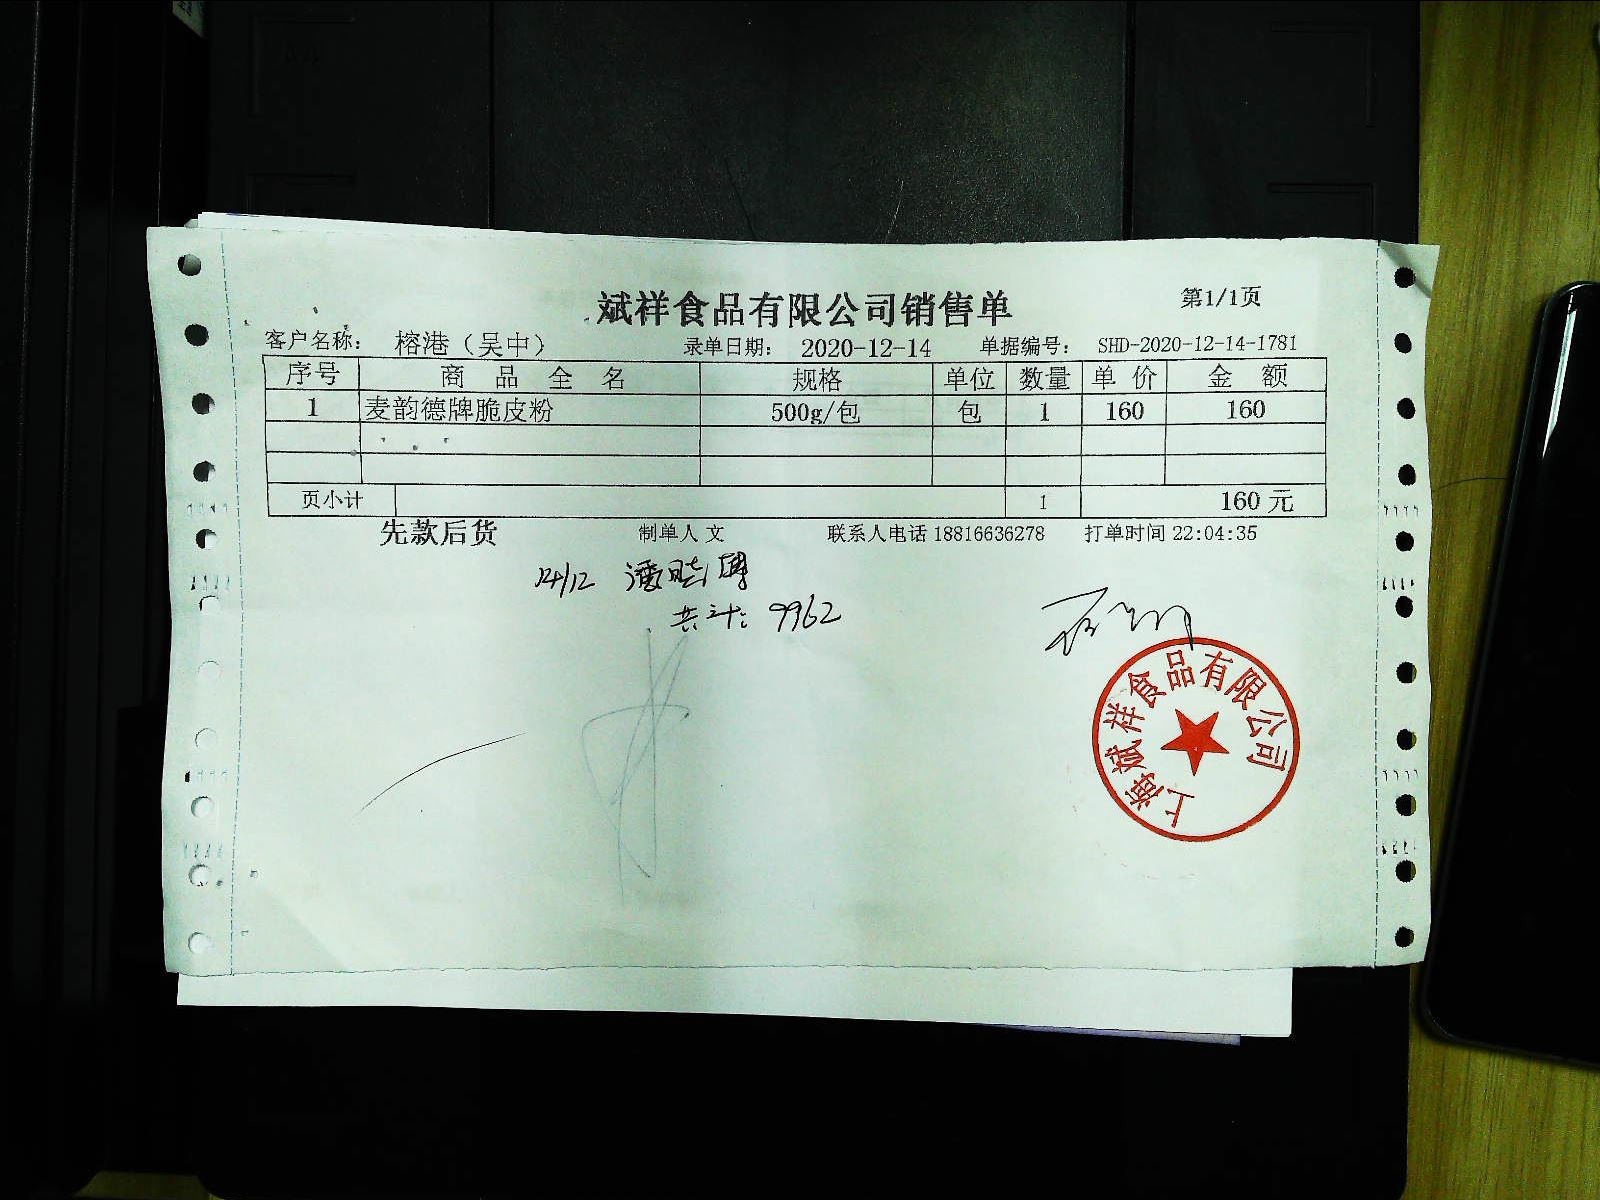 斌祥食品有限公司销售单 第1/1页
客户名称: 榕港（吴中） 录单日期: 2020-12-14 单据编号: SHD-2020-12-14-1781
序号 商品全名 规格 单位 数量 单价 金额
1 麦韵德牌脆皮粉 500g/包 包 1 160 160
页小计 1 160元
先款后货 制单人 文 联系人电话 18816636278 打单时间 22:04:35
14/12
共计: 9962
上海斌祥食品有限公司